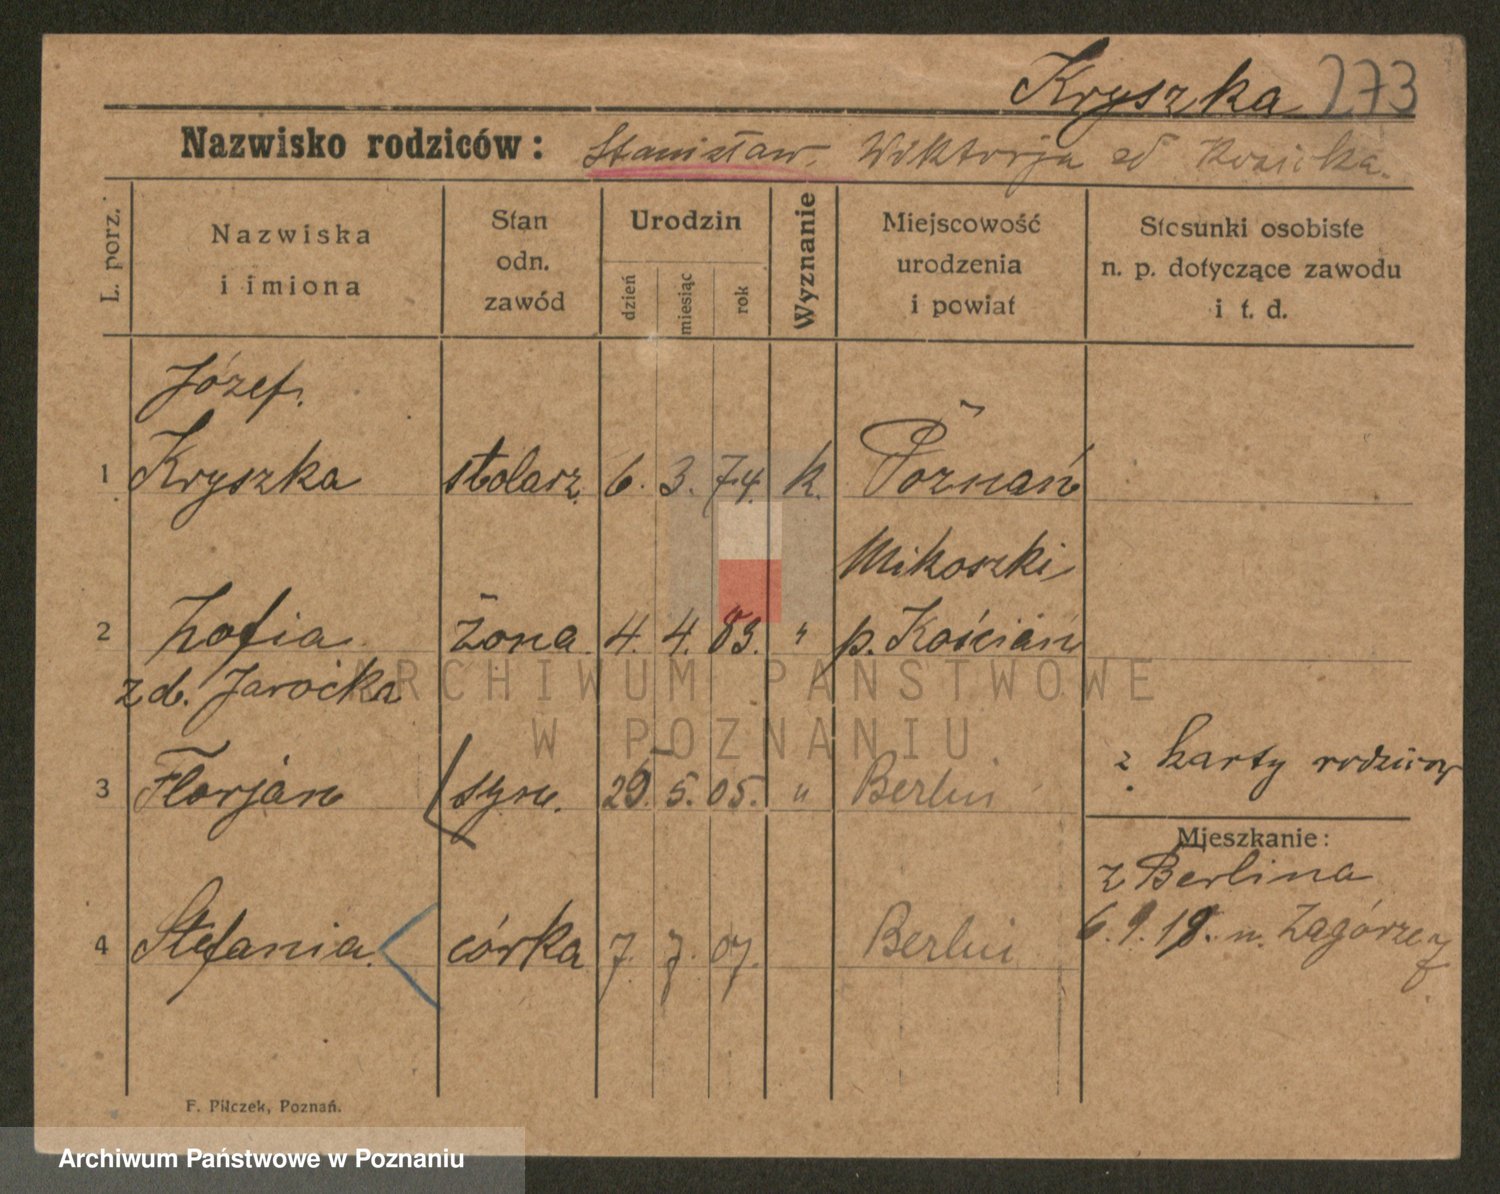 Kryszka 273
Nazwisko rodziców: Stanisław. Wiktorja
L. porz.
Nazwiska
i imiona
Stan
odn.
zawód
Urodzin
dzień
miesiąc
rok
Wyznanie
Miejscowość
urodzenia
i powiat
Stosunki osobiste
n. p. dotyczące zawodu
i t. d.
Józef.
1 Kryszka stolarz 6. 3. 74. k. Poznań
Mikoszki
2 Zofia żona 4. 4. 83. " p. Kościan
z d. Jarocka
z karty rodziców
3 Florjan syn. 5. 05. " Berlin
Mieszkanie:
z Berlina
4 Stefania. córka 7. 7. 07. Berlin
6. 9. 19. n. Zagórze
F. Pilczek, Poznań.
ARCHIWUM PAŃSTWOWE
W POZNANIU
Archiwum Państwowe w Poznaniu